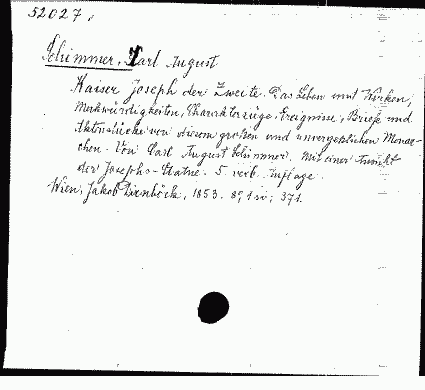 52027.
Schimmer, Karl August
Kaiser Joseph der Zweite. Das Leben und Wirken,
Merkwürdigkeiten, Charakterzüge, Ereignisse, Briefe und
Aktenstücke von diesem großen und unvergeßlichen Monar-
chen. Von Carl August Schimmer. Mit einer Ansicht
der Josephs-Statue. 5. verb. Auflage
Wien, Jakob Dirnböck, 1853. 8°, 371.